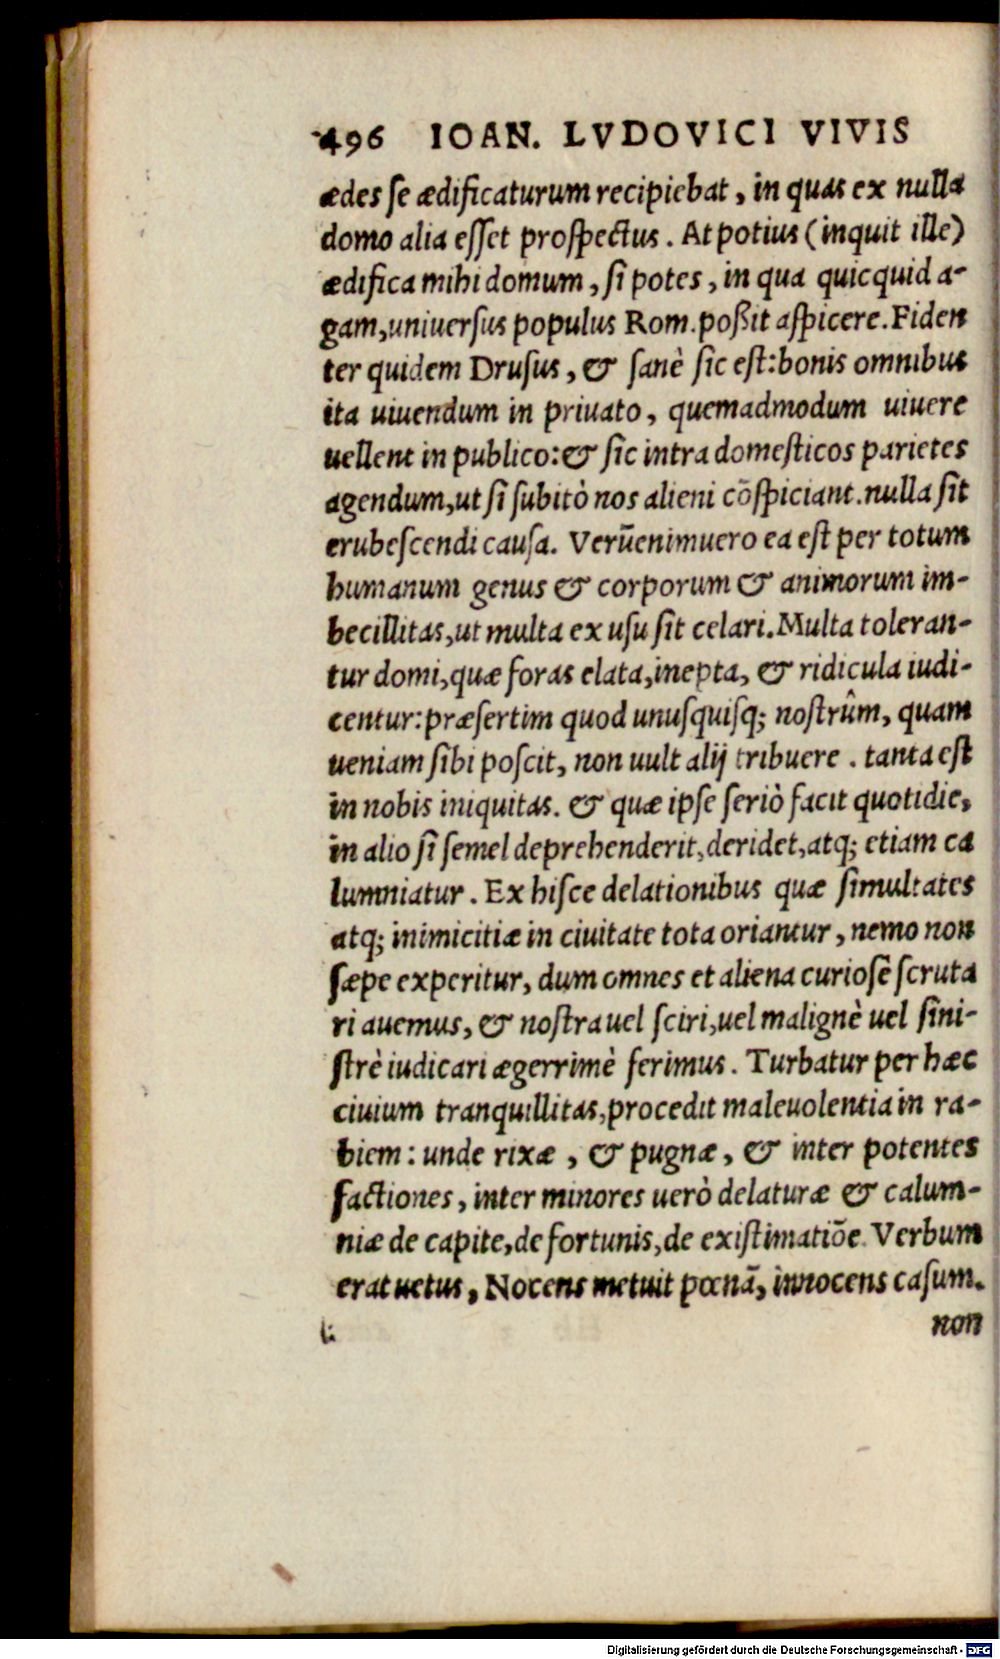 496 IOAN. LVDOVICI VIVIS
ædes se ædificaturum recipiebat, in quas ex nulla
domo alia esset prospectus. At potius (inquit ille)
ædifica mihi domum, si potes, in qua quicquid a-
gam, uniuersus populus Rom. poßit aspicere. Fiden
ter quidem Drusus, & sanè sic est: bonis omnibus
ita uiuendum in priuato, quemadmodum uiuere
uellent in publico: & sic intra domesticos parietes
agendum, ut si subitò nos alieni cōspiciant. nulla sit
erubescendi causa. Verūenimuero ea est per totum
humanum genus & corporum & animorum im-
becillitas, ut multa ex usu sit celari. Multa toleran-
tur domi, quæ foras elata, inepta, & ridicula iudi-
centur: præsertim quod unusquisq; nostrûm, quam
ueniam sibi poscit, non uult alij tribuere. tanta est
in nobis iniquitas. & quæ ipse seriò facit quotidie,
in alio si semel deprehenderit, deridet, atq; etiam ca
lumniatur. Ex hisce delationibus quæ simultates
atq; inimicitiæ in ciuitate tota oriantur, nemo non
sæpe experitur, dum omnes et aliena curiosè scruta
ri auemus, & nostra uel sciri, uel malignè uel sini-
strè iudicari ægerrimè ferimus. Turbatur per hæc
ciuium tranquillitas, procedit maleuolentia in ra-
biem: unde rixæ, & pugnæ, & inter potentes
factiones, inter minores uerò delaturæ & calum-
niæ de capite, de fortunis, de existimatiōe. Verbum
erat uetus, Nocens metuit pœnā, innocens casum.
non
Digitalisierung gefördert durch die Deutsche Forschungsgemeinschaft - DFG